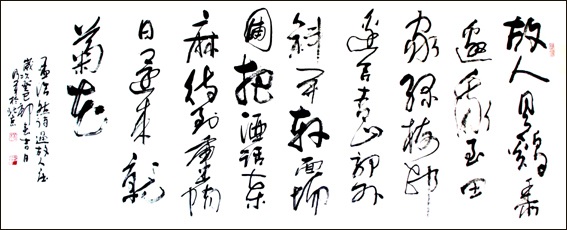 故人具鷄黍
邀我至田
家綠樹邨
邊合青山郭外
斜開軒面場
圃把酒話桑
麻待到重陽
日還來就
菊花
孟浩然詩過故人莊
歲次癸巳